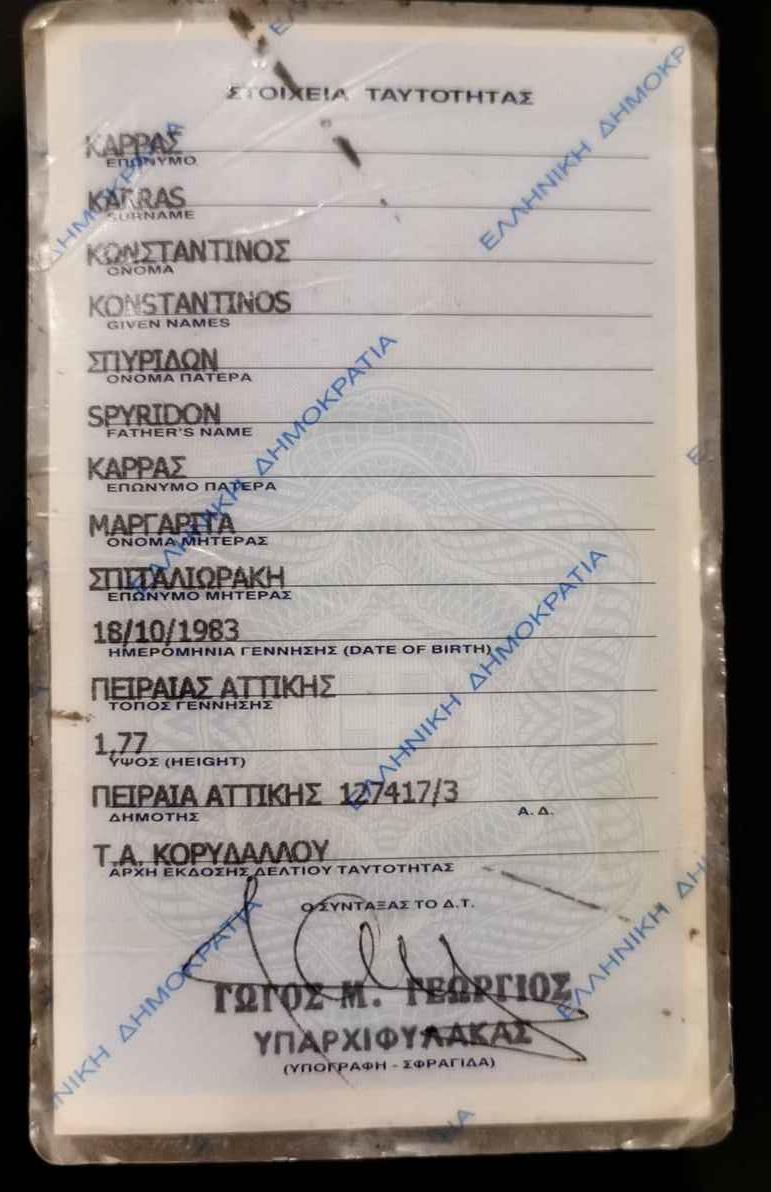 ΣΤΟΙΧΕΙΑ ΤΑΥΤΟΤΗΤΑΣ
ΚΑΡΡΑΣ
ΕΠΩΝΥΜΟ
KARRAS
SURNAME
ΚΩΝΣΤΑΝΤΙΝΟΣ
ΟΝΟΜΑ
KONSTANTINOS
GIVEN NAMES
ΣΠΥΡΙΔΩΝ
ΟΝΟΜΑ ΠΑΤΕΡΑ
SPYRIDON
FATHER'S NAME
ΚΑΡΡΑΣ
ΕΠΩΝΥΜΟ ΠΑΤΕΡΑ
ΜΑΡΓΑΡΙΤΑ
ΟΝΟΜΑ ΜΗΤΕΡΑΣ
ΣΠΙΤΑΛΙΩΡΑΚΗ
ΕΠΩΝΥΜΟ ΜΗΤΕΡΑΣ
18/10/1983
ΗΜΕΡΟΜΗΝΙΑ ΓΕΝΝΗΣΗΣ (DATE OF BIRTH)
ΠΕΙΡΑΙΑΣ ΑΤΤΙΚΗΣ
ΤΟΠΟΣ ΓΕΝΝΗΣΗΣ
1,77
ΥΨΟΣ (HEIGHT)
ΠΕΙΡΑΙΑ ΑΤΤΙΚΗΣ 127417/3
ΔΗΜΟΤΗΣ Α.Δ.
Τ.Α. ΚΟΡΥΔΑΛΛΟΥ
ΑΡΧΗ ΕΚΔΟΣΗΣ ΔΕΛΤΙΟΥ ΤΑΥΤΟΤΗΤΑΣ
Ο ΣΥΝΤΑΞΑΣ ΤΟ Δ.Τ.
ΓΩΓΟΣ Μ. ΓΕΩΡΓΙΟΣ
ΥΠΑΡΧΙΦΥΛΑΚΑΣ
(ΥΠΟΓΡΑΦΗ - ΣΦΡΑΓΙΔΑ)
ΕΛΛΗΝΙΚΗ ΔΗΜΟΚΡ
ΕΛΛΗΝΙΚΗ ΔΗΜΟΚΡΑΤΙΑ
ΕΛΛΗΝΙΚΗ ΔΗΜΟΚΡΑΤΙΑ
ΕΛΛΗΝΙΚΗ ΔΗ
ΗΝΙΚΗ ΔΗΜΟΚΡΑΤΙΑ